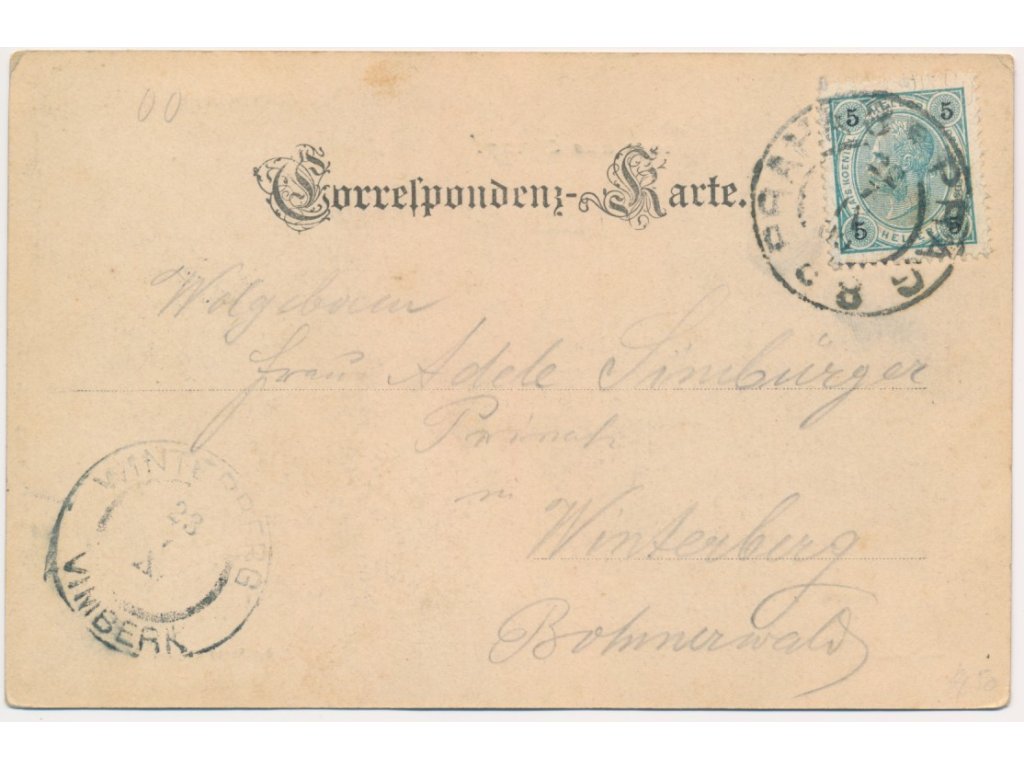 00
Correspondenz-Karte.
5 5
5 5
HELLER
PRAG
8
Wolgeboren
Frau Adele Simbürger
Privat
in
Winterberg
Bohmerwald
WINTERBERG
23
VIMBERK